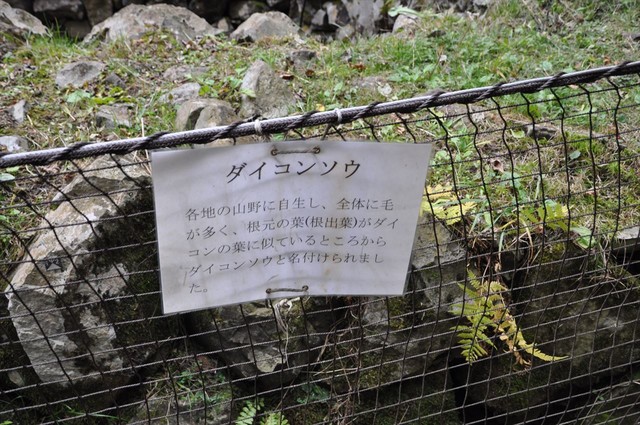 ダイコンソウ
各地の山野に自生し、全体に毛
が多く、根元の葉(根出葉)がダイ
コンの葉に似ているところから
ダイコンソウと名付けられまし
た。